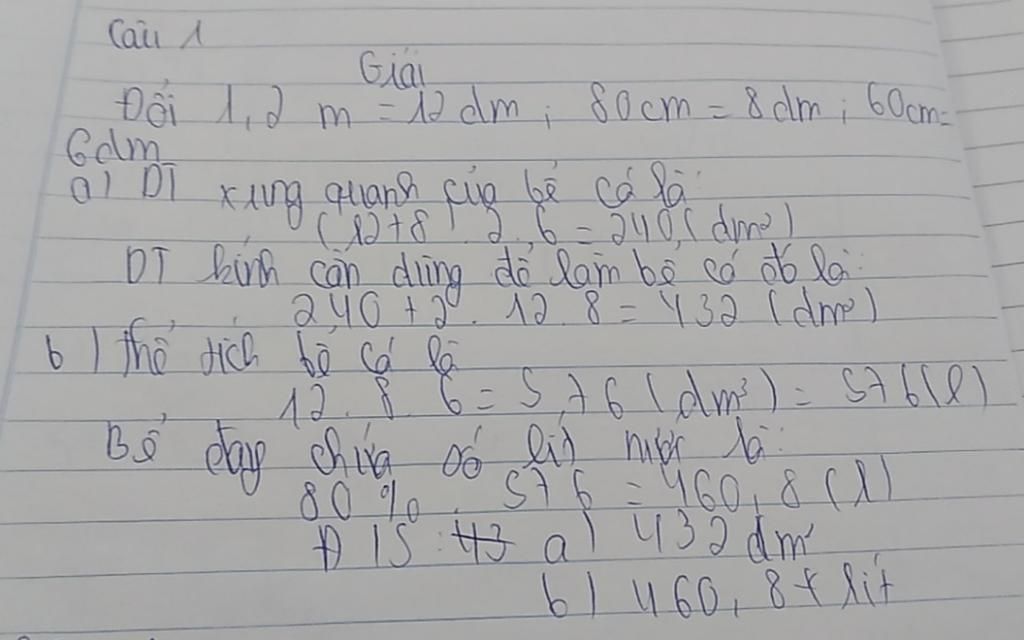 Câu 1
Giải
Đổi 1,2 m = 12 dm ; 80cm = 8dm ; 60cm =
6dm
a) DT xung quanh của bể cá là:
(12+8) . 2 . 6 = 240 (dm²)
DT kính cần dùng để làm bể cá đó là:
240 + 2 . 12 . 8 = 432 (dm²)
b) Thể tích bể cá là
12 . 8 . 6 = 576 (dm³) = 576 (l)
Bể đang chứa số lít nước là:
80% . 576 = 460,8 (l)
Đ/S : a) 432 dm²
b) 460,8 lít